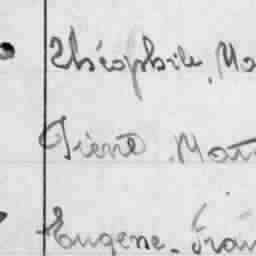 Théophile, Ma
Pierre Mar
Eugene-Fran